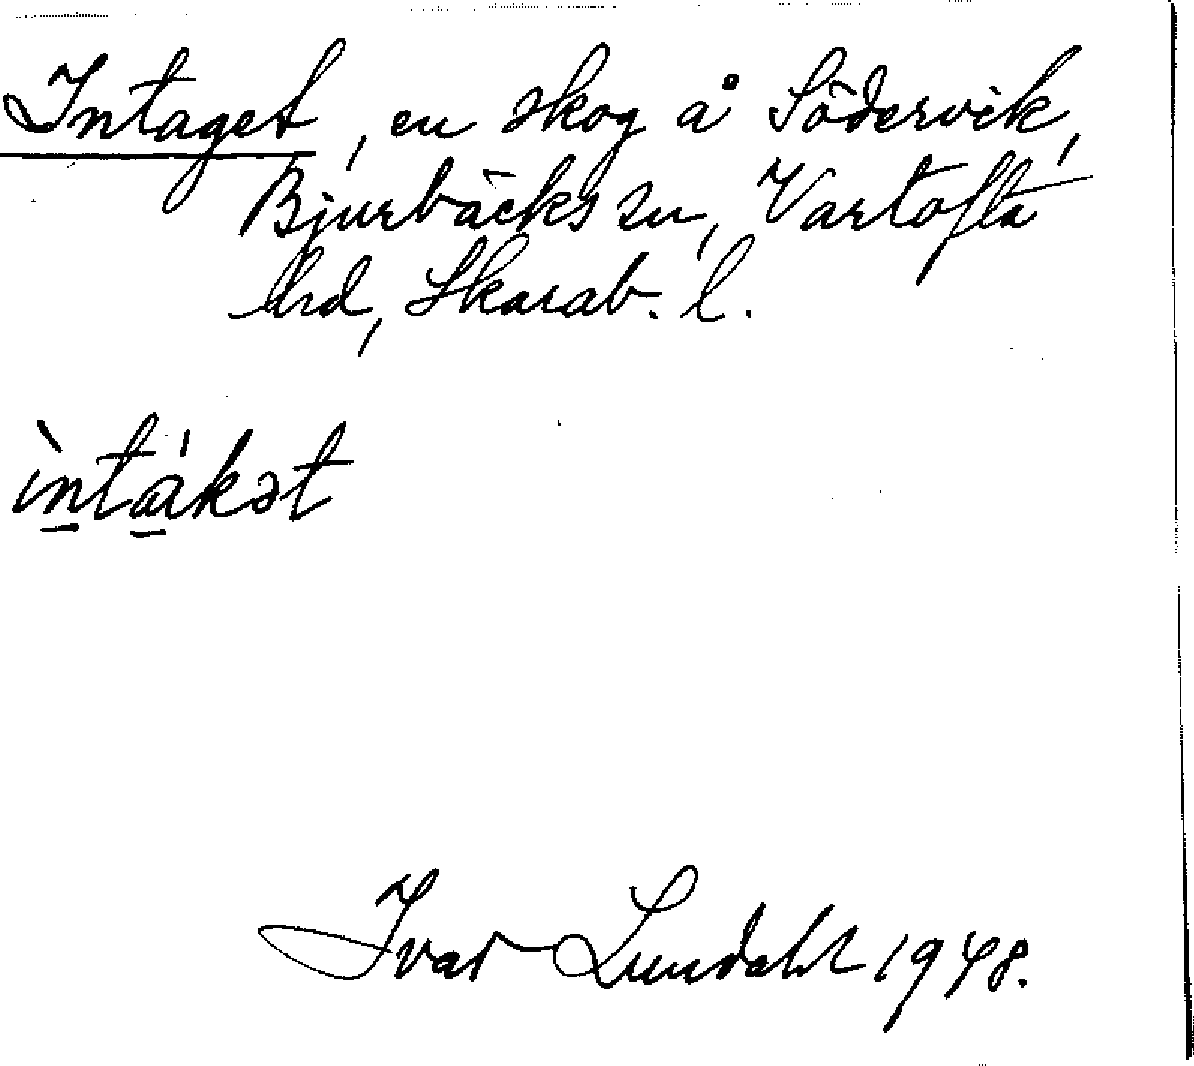 Intaget, en skog å Södervik,
Bjurbäcks sn, Vartofta
hrd, Skarab. l.
ìntákət
Ivar Lundahl 1948.